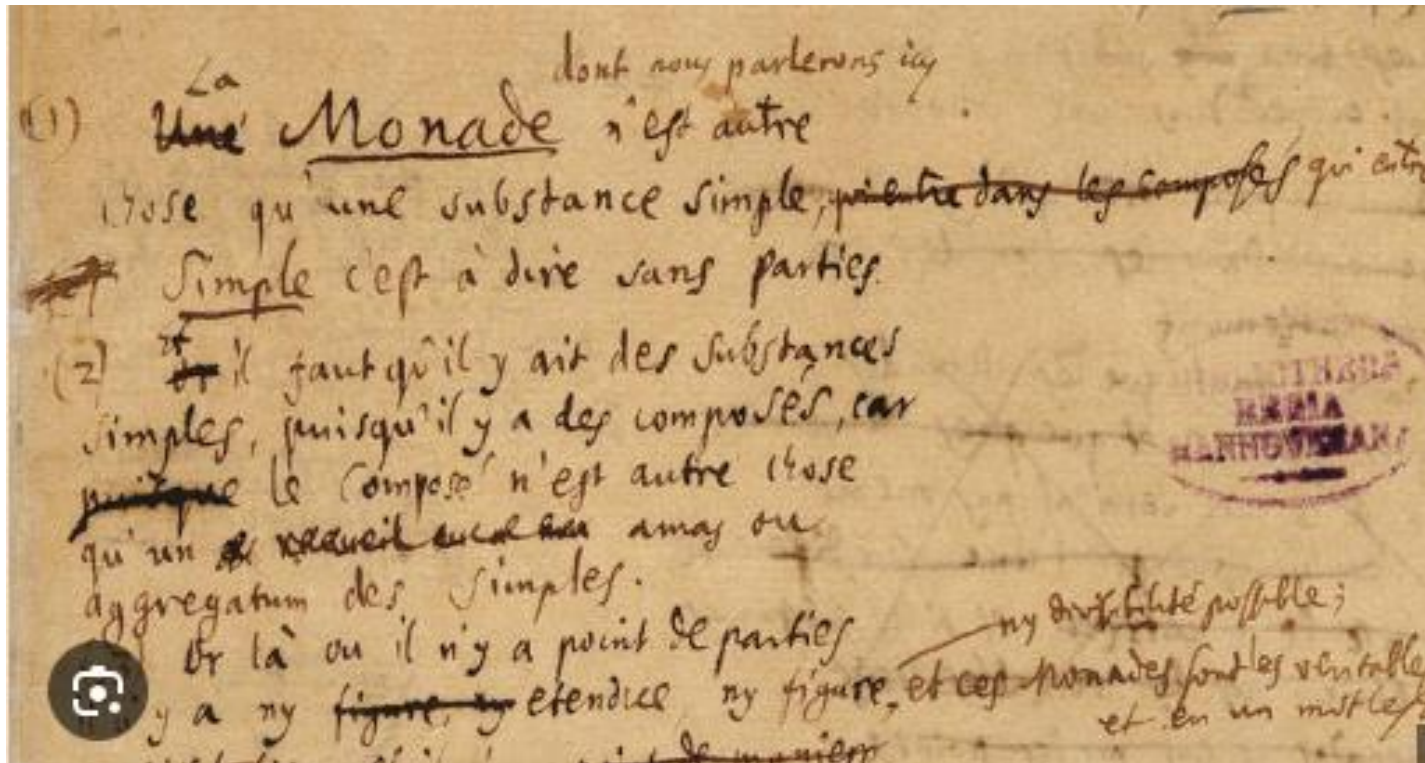 La dont nous parlerons icy
(1) Une Monade n'est autre
chose qu'une substance simple, qui entre dans les composés qui entre
Simple c'est à dire sans parties.
(2) Et or il faut qu'il y ait des substances
simples, puisqu'il y a des composés, car
puisque le Composé n'est autre chose
qu'un recueil amas ou
aggregatum des Simples.
Or là ou il n'y a point de parties ny divisibilité possible;
y a ny figure, ny etendue ny figure, et ces Monades sont les veritable
et en un mot les
point de maniere
BIBLIOTHECA
REGIA
HANNOVERANA